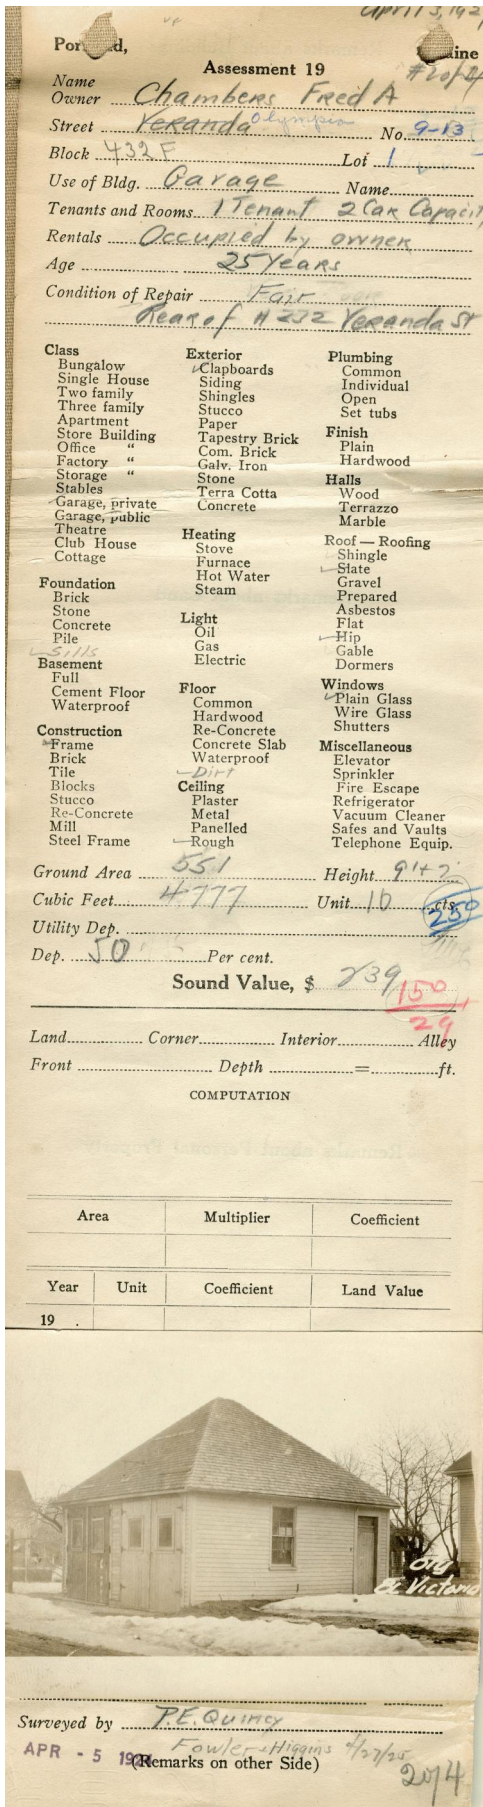 April 3, 192
Por nd, aine
Assessment 19
#2 of 4
Name
Owner Chambers Fred A
Street Veranda Olympia No. 9-13
Block 432 F Lot 1
Use of Bldg. Garage Name
Tenants and Rooms 1 Tenant 2 Car Capacit
Rentals Occupied by owner
Age 25 Years
Condition of Repair Fair
Rear of # 232 Veranda St
Class
Bungalow
Single House
Two family
Three family
Apartment
Store Building
Office "
Factory "
Storage "
Stables
Garage, private
Garage, public
Theatre
Club House
Cottage
Foundation
Brick
Stone
Concrete
Pile
Sills
Basement
Full
Cement Floor
Waterproof
Construction
Frame
Brick
Tile
Blocks
Stucco
Re-Concrete
Mill
Steel Frame
Exterior
Clapboards
Siding
Shingles
Stucco
Paper
Tapestry Brick
Com. Brick
Galv. Iron
Stone
Terra Cotta
Concrete
Heating
Stove
Furnace
Hot Water
Steam
Light
Oil
Gas
Electric
Floor
Common
Hardwood
Re-Concrete
Concrete Slab
Waterproof
Dirt
Ceiling
Plaster
Metal
Panelled
Rough
Plumbing
Common
Individual
Open
Set tubs
Finish
Plain
Hardwood
Halls
Wood
Terrazzo
Marble
Roof — Roofing
Shingle
Slate
Gravel
Prepared
Asbestos
Flat
Hip
Gable
Dormers
Windows
Plain Glass
Wire Glass
Shutters
Miscellaneous
Elevator
Sprinkler
Fire Escape
Refrigerator
Vacuum Cleaner
Safes and Vaults
Telephone Equip.
Ground Area 551 Height 9'+2'
Cubic Feet 4777 Unit 10 cts.
250
Utility Dep.
Dep. 50 Per cent.
Sound Value, $ 239
150
29
Land Corner Interior Alley
Front Depth = ft.
COMPUTATION
Area Multiplier Coefficient
Year Unit Coefficient Land Value
19 .
Oly
Ex Victoria
Surveyed by P.E. Quincy
Fowler + Higgins 4/27/25
APR - 5 192
(Remarks on other Side)
2 of 4